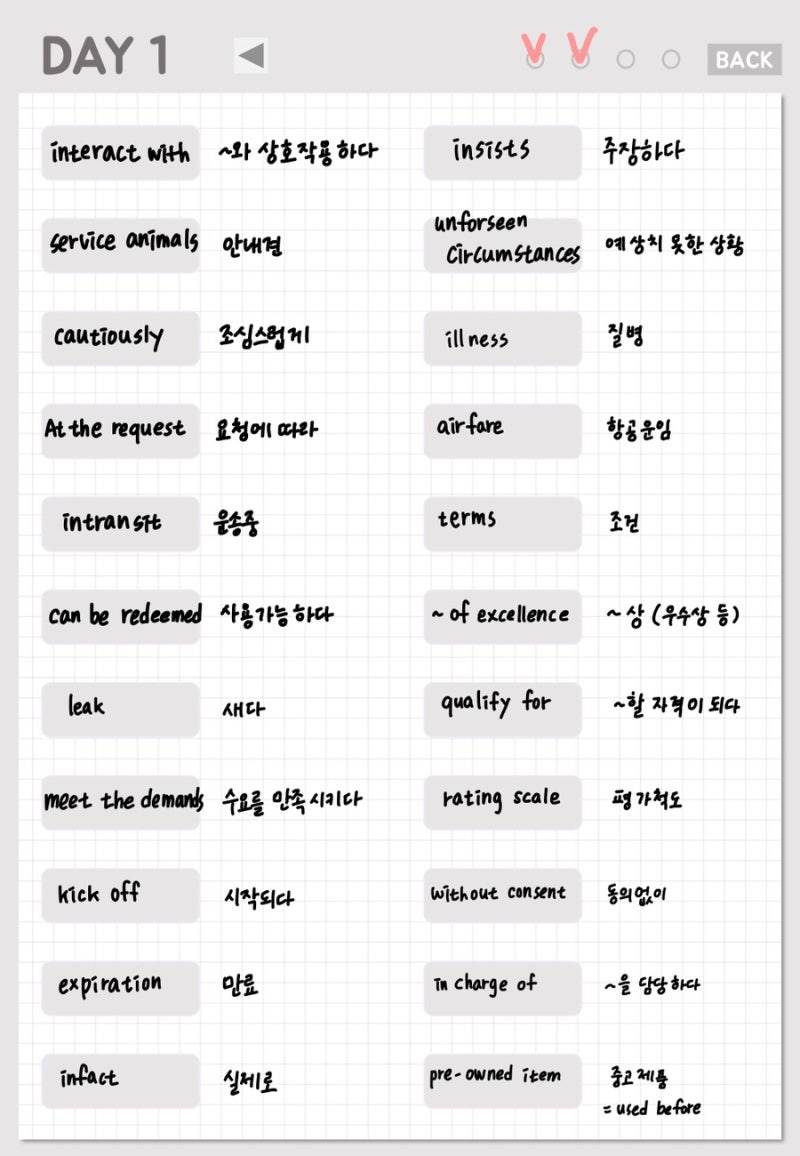 DAY 1
BACK
interact with ~와 상호작용하다
service animals 안내견
cautiously 조심스럽게
At the request 요청에 따라
intransit 운송중
can be redeemed 사용가능하다
leak 새다
meet the demands 수요를 만족시키다
kick off 시작되다
expiration 만료
infact 실제로
insists 주장하다
unforseen
circumstances 예상치 못한 상황
illness 질병
airfare 항공운임
terms 조건
~ of excellence ~상 (우수상 등)
qualify for ~할 자격이 되다
rating scale 평가척도
without consent 동의없이
in charge of ~을 담당하다
pre-owned item 중고제품
= used before